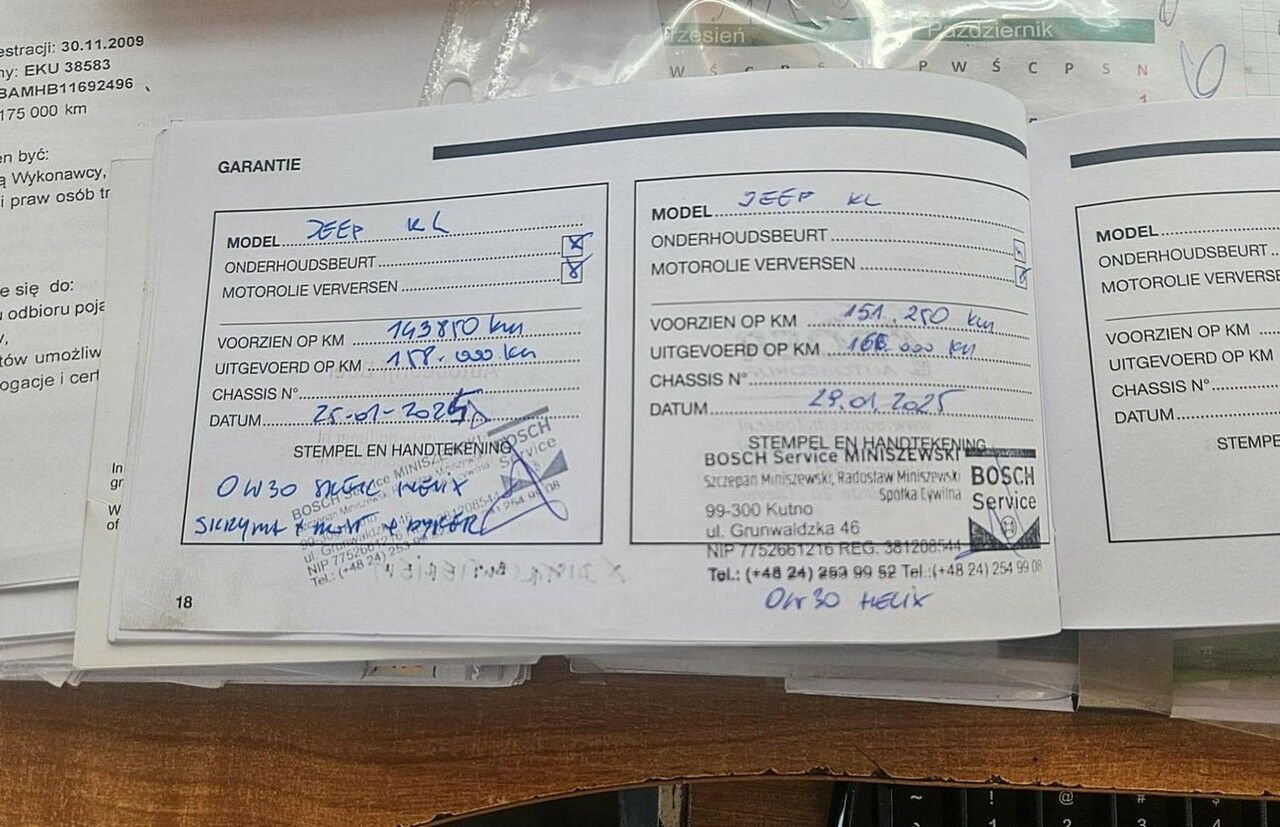 estracji: 30.11.2009
ny: EKU 38583
BAMHB11692496
175 000 km
en być:
ą Wykonawcy,
i praw osób tr
e się do:
u odbioru poja
tów umożliw
ogacje i cert
In
gr
W
of
rzesień
Październik
W Ś C P
P W Ś C P S N
1
GARANTIE
MODEL JEEP KL
ONDERHOUDSBEURT X
MOTOROLIE VERVERSEN X
VOORZIEN OP KM 143850 km
UITGEVOERD OP KM 158.000 km
CHASSIS N°
DATUM 25-01-2025
STEMPEL EN HANDTEKENING
0W30 HELIX
SKRZYNIA + MOST +
BOSCH Service MINISZEWSKI
99-300 Kutno
ul. Grunwaldzka 46
NIP 7752661216 REG. 381208544
Tel.: (+48 24) 253 99 52 Tel.:(+48 24) 254 99 08
BOSCH
Service
18
MODEL JEEP KL
ONDERHOUDSBEURT
MOTOROLIE VERVERSEN
VOORZIEN OP KM 151.250 km
UITGEVOERD OP KM 166.000 km
CHASSIS N°
DATUM 29.01.2025
STEMPEL EN HANDTEKENING
BOSCH Service MINISZEWSKI
Szczepan Miniszewski, Radosław Miniszewski
Spółka Cywilna
99-300 Kutno
ul. Grunwaldzka 46
NIP 7752661216 REG. 381208544
Tel.: (+48 24) 253 99 52 Tel.:(+48 24) 254 99 08
BOSCH
Service
0W30 HELIX
MODEL
ONDERHOUDSBEURT
MOTOROLIE VERVERSE
VOORZIEN OP KM
UITGEVOERD OP KM
CHASSIS N°
DATUM
STEMPE
~ ! @ # $
1 2 3 4